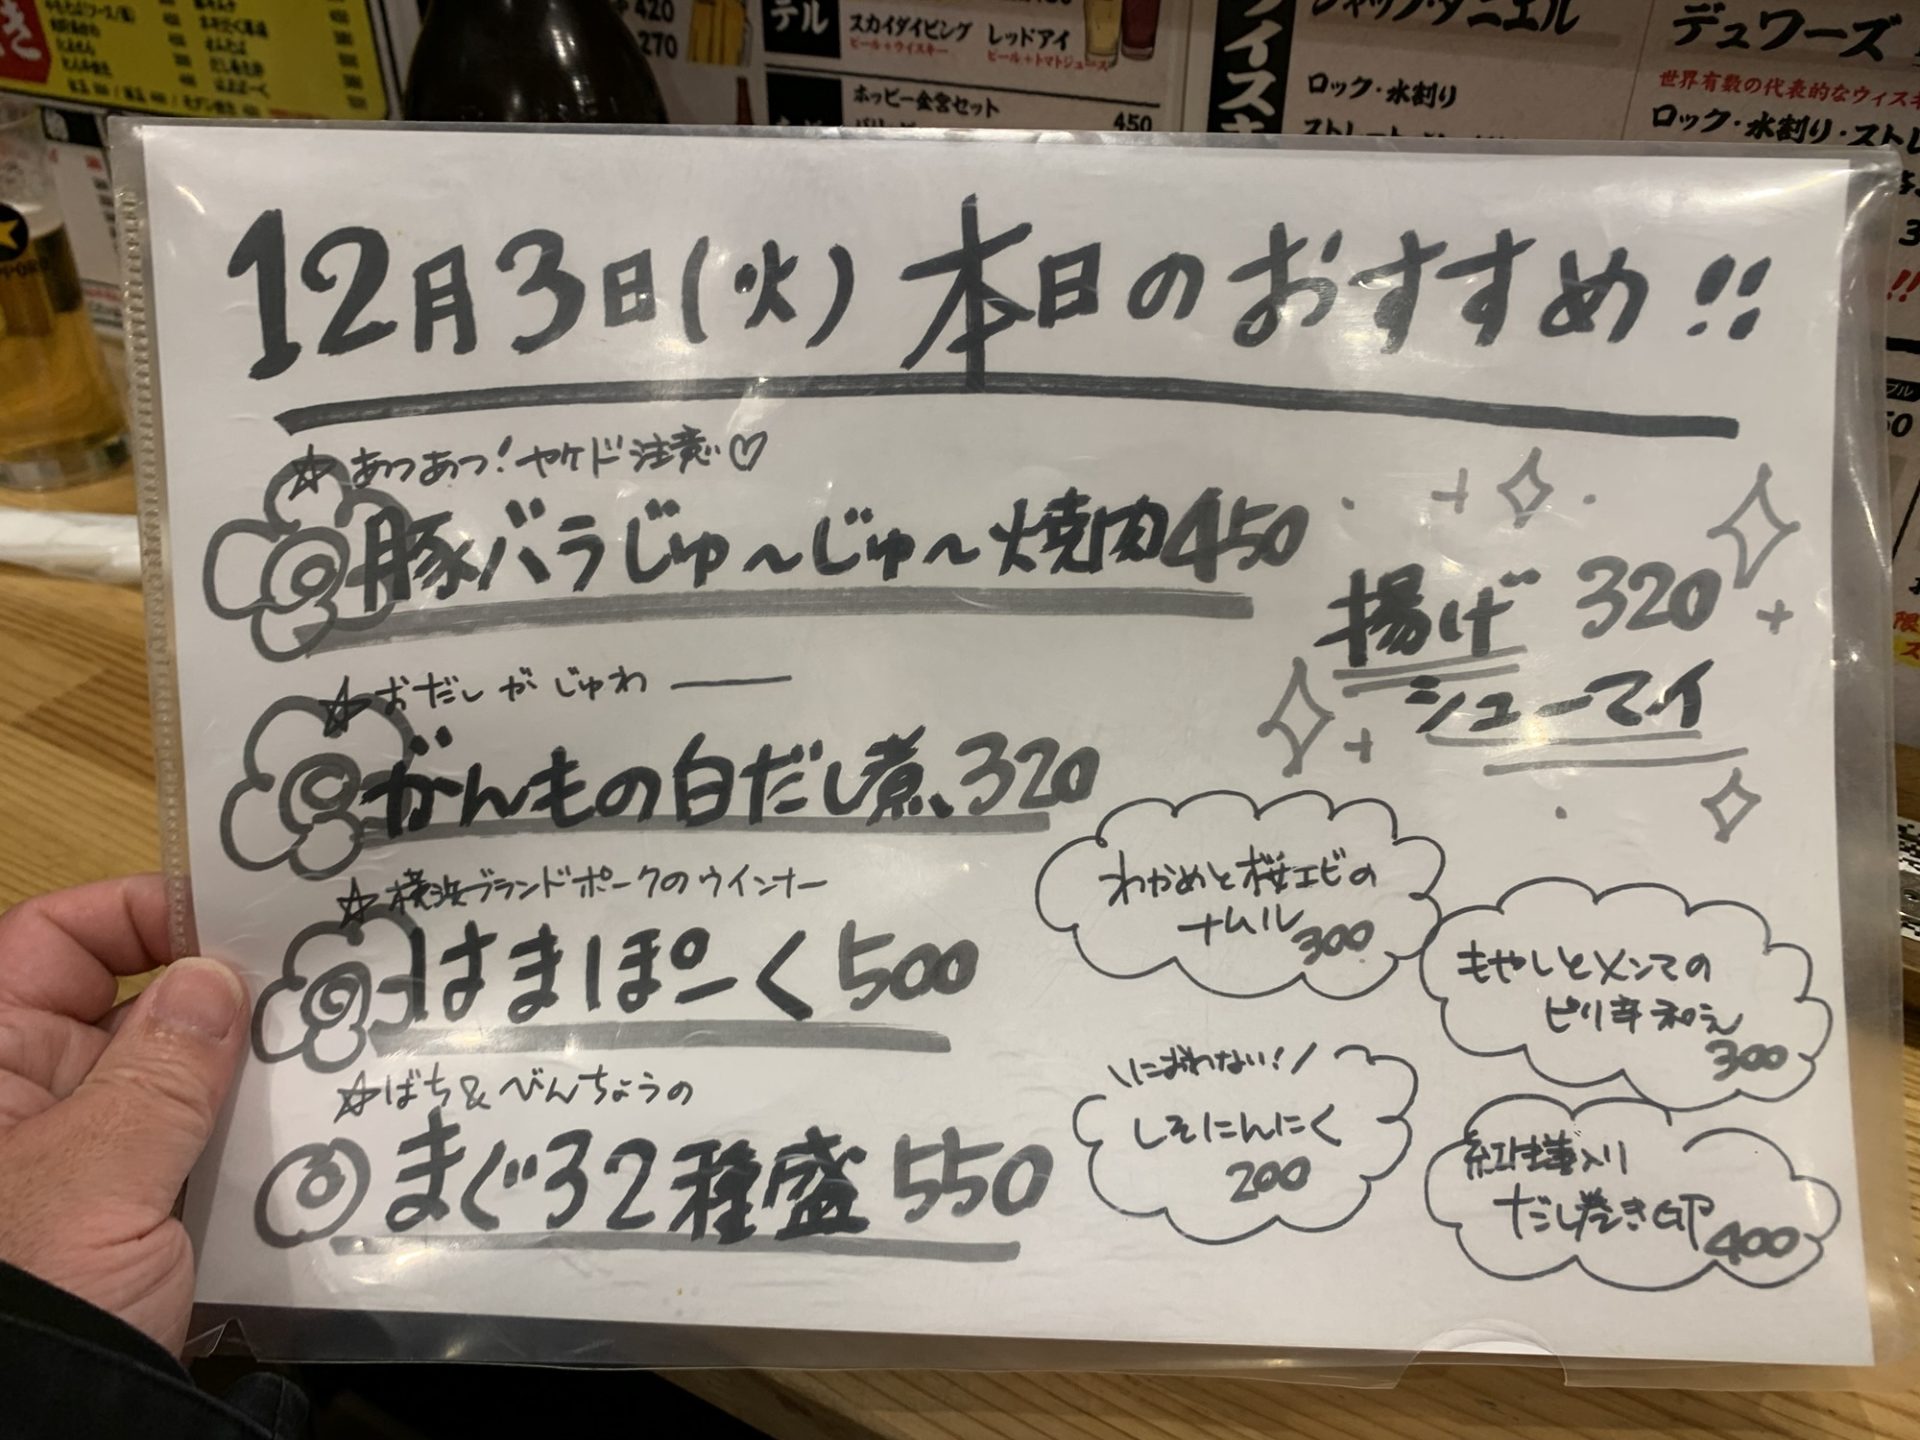 12月3日(火) 本日のおすすめ!!
☆あつあつ!ヤケド注意♡
豚バラじゅ〜じゅ〜焼肉450
☆おだしがじゅわ――
がんもの白だし煮、320
☆横浜ブランドポークのウインナー
はまぽーく500
☆ばち&べんちょうの
まぐろ2種盛550
揚げ 320
シューマイ
わかめと桜エビの
ナムル300
もやしとメンマの
ピリ辛和え
300
\におわない!/
しそにんにく
200
紅生姜入り
だし巻き卵400
420
270
テル
スカイダイビング
ビール+ウイスキー
レッドアイ
ビール+トマトジュース
ホッピー金宮セット
450
ジャック・ダニエル
ロック・水割り
デュワーズ
世界有数の代表的なウィスキ
ロック・水割り・ストレ